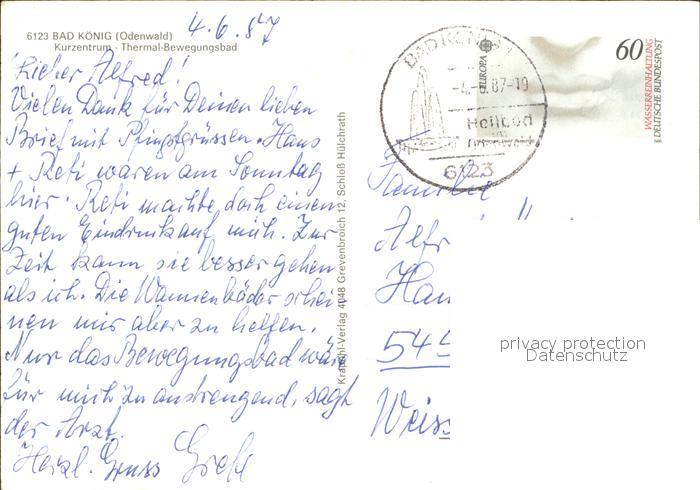 4.6.87
6123 BAD KÖNIG (Odenwald)
Kurzentrum - Thermal-Bewegungsbad
Lieber Alfred!
Vielen Dank für Deinen lieben
Brief mit Pfingstgrüssen. Hans
+ Reti waren am Sonntag
hier. Reti machte doch einen
guten Eindruck auf mich. Zur
Zeit kann sie besser gehen
als ich. Die Wannenbäder schei-
nen mir aber zu helfen.
Nur das Bewegungsbad wäre
für mich zu anstrengend, sagt
der Arzt.
Herzl. Gruss
Krapohl-Verlag 4048 Grevenbroich 12, Schloß Hülchrath
BAD KÖNIG 1
-4.-6.87-19
Heilbad
im
Odenwald
6123
EUROPA
60
WASSERREINHALTUNG
DEUTSCHE BUNDESPOST
Familie
Alfr
Han
54
Weiss
privacy protection
Datenschutz